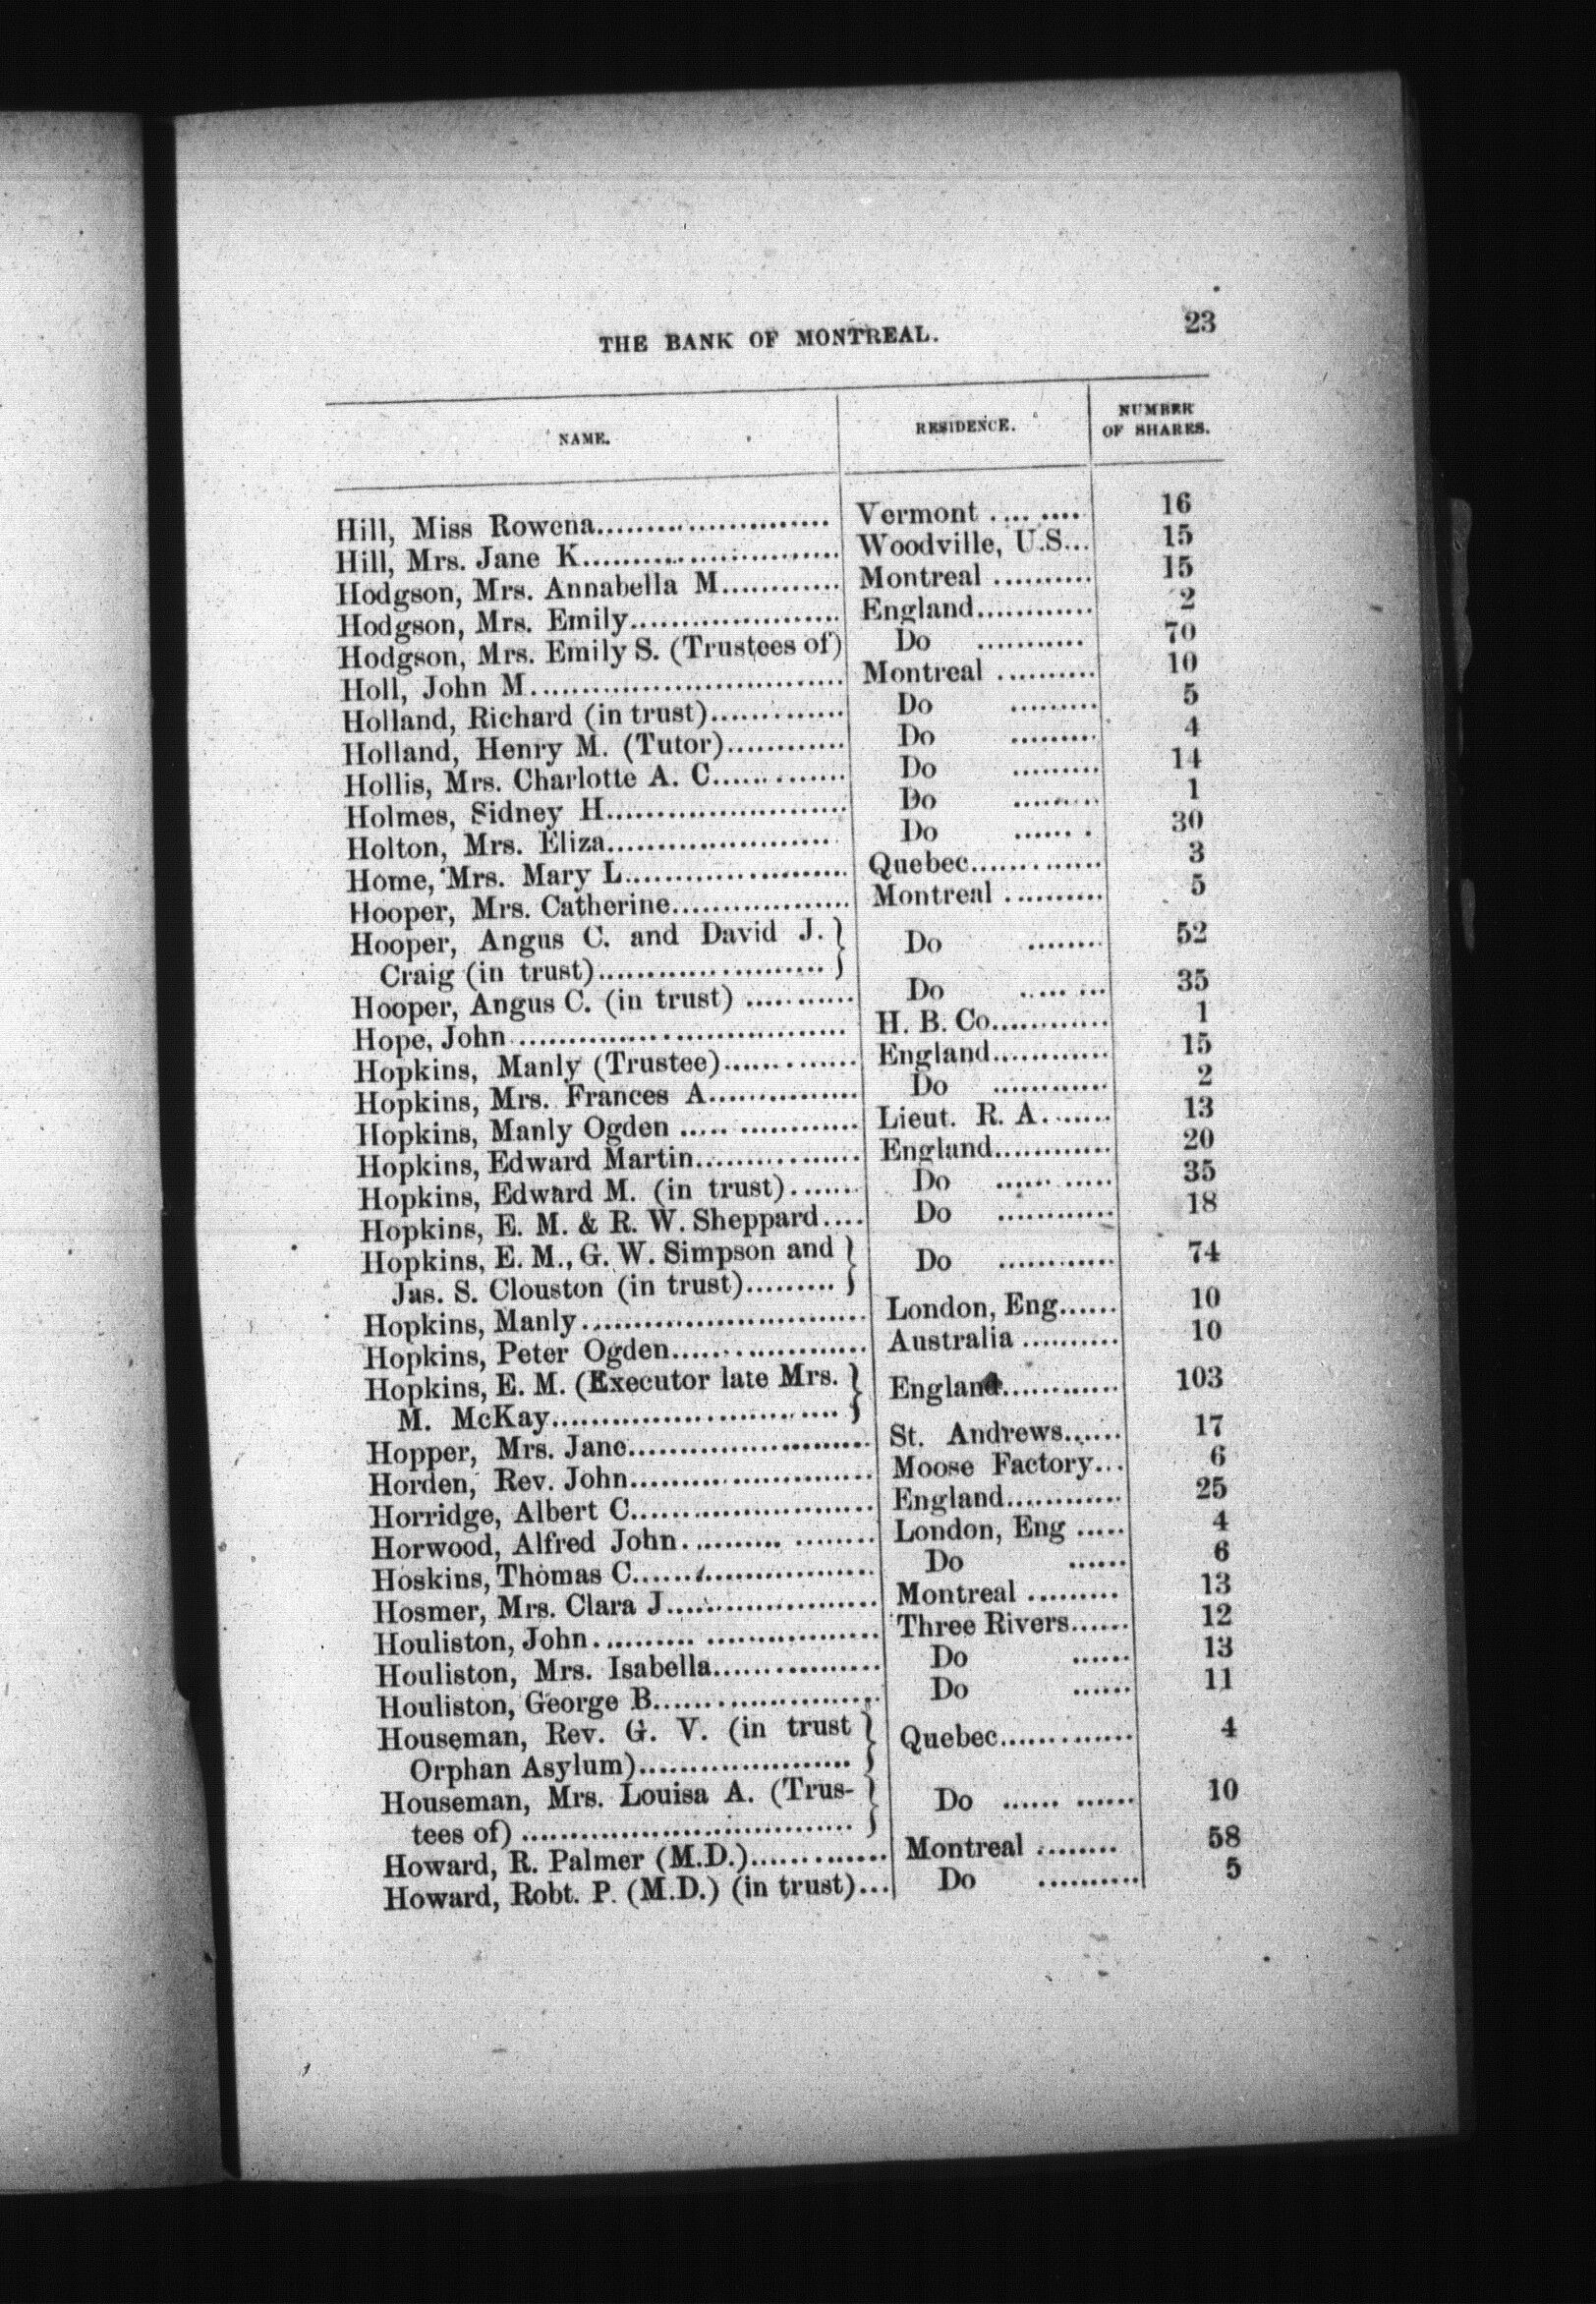 THE BANK OF MONTREAL. 23
NAME. RESIDENCE. NUMBER OF SHARES.
Hill, Miss Rowena........................ Vermont .... .... 16
Hill, Mrs. Jane K.......................... Woodville, U.S... 15
Hodgson, Mrs. Annabella M............ Montreal .......... 15
Hodgson, Mrs. Emily..................... England............ 2
Hodgson, Mrs. Emily S. (Trustees of) Do ........... 70
Holl, John M............................... Montreal .......... 10
Holland, Richard (in trust)............. Do ......... 5
Holland, Henry M. (Tutor)............ Do ......... 4
Hollis, Mrs. Charlotte A. C............. Do ......... 14
Holmes, Sidney H........................ Do ......... 1
Holton, Mrs. Eliza...................... Do ...... . 30
Home, Mrs. Mary L...................... Quebec............. 3
Hooper, Mrs. Catherine.................. Montreal .......... 5
Hooper, Angus C. and David J. } Do ........ 52
Craig (in trust)....................... }
Hooper, Angus C. (in trust) ........... Do ..... ... 35
Hope, John ................................. H. B. Co............ 1
Hopkins, Manly (Trustee)............. England............ 15
Hopkins, Mrs. Frances A............... Do ............ 2
Hopkins, Manly Ogden ..... ............ Lieut. R. A....... 13
Hopkins, Edward Martin................ England............ 20
Hopkins, Edward M. (in trust)....... Do ...... ..... 35
Hopkins, E. M. & R. W. Sheppard.... Do ............ 18
Hopkins, E. M., G. W. Simpson and } Do ............ 74
Jas. S. Clouston (in trust)......... }
Hopkins, Manly............................ London, Eng...... 10
Hopkins, Peter Ogden................... Australia .......... 10
Hopkins, E. M. (Executor late Mrs. } England............ 103
M. McKay............................ }
Hopper, Mrs. Jane........................ St. Andrews...... 17
Horden, Rev. John........................ Moose Factory... 6
Horridge, Albert C........................ England............ 25
Horwood, Alfred John.......... ........ London, Eng ..... 4
Hoskins, Thomas C........................ Do ...... 6
Hosmer, Mrs. Clara J..................... Montreal ......... 13
Houliston, John.......... ................. Three Rivers...... 12
Houliston, Mrs. Isabella................. Do ...... 13
Houliston, George B....................... Do ...... 11
Houseman, Rev. G. V. (in trust } Quebec............. 4
Orphan Asylum)..................... }
Houseman, Mrs. Louisa A. (Trus- } Do ...... ...... 10
tees of) ................................. }
Howard, R. Palmer (M.D.)............. Montreal ........ 58
Howard, Robt. P. (M.D.) (in trust)... Do .......... 5